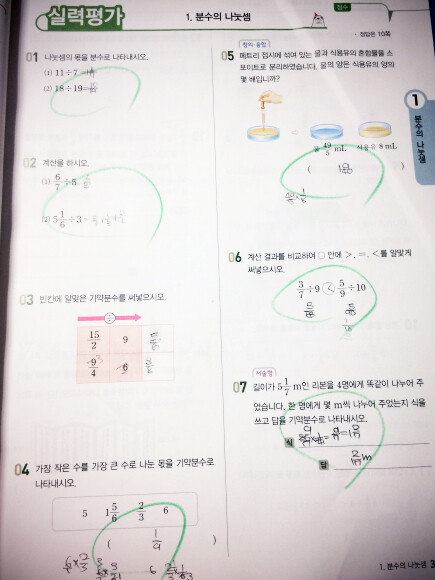 실력평가
1. 분수의 나눗셈
점수
• 정답은 10쪽
01 나눗셈의 몫을 분수로 나타내시오.
(1) 11÷7=
(2) 18÷19=
02 계산을 하시오.
(1) 6/7÷5
(2) 5 1/6÷3
03 빈칸에 알맞은 기약분수를 써넣으시오.
÷
15/2 9 5/6
9/4 6
04 가장 작은 수를 가장 큰 수로 나눈 몫을 기약분수로
나타내시오.
5 1 5/6 2/3 6
( 1/9
창의·융합
05 페트리 접시에 섞여 있는 물과 식용유의 혼합물을 스
포이트로 분리하였습니다. 물의 양은 식용유의 양의
몇 배입니까?
물 49/5 mL 식용유 8 mL
(
1
분수의 나눗셈
06 계산 결과를 비교하여 ○ 안에 >, =, <를 알맞게
써넣으시오.
3/7÷9 < 5/9÷10
서술형
07 길이가 5 1/7 m인 리본을 4명에게 똑같이 나누어 주
었습니다. 한 명에게 몇 m씩 나누어 주었는지 식을
쓰고 답을 기약분수로 나타내시오.
식
답
1. 분수의 나눗셈 3